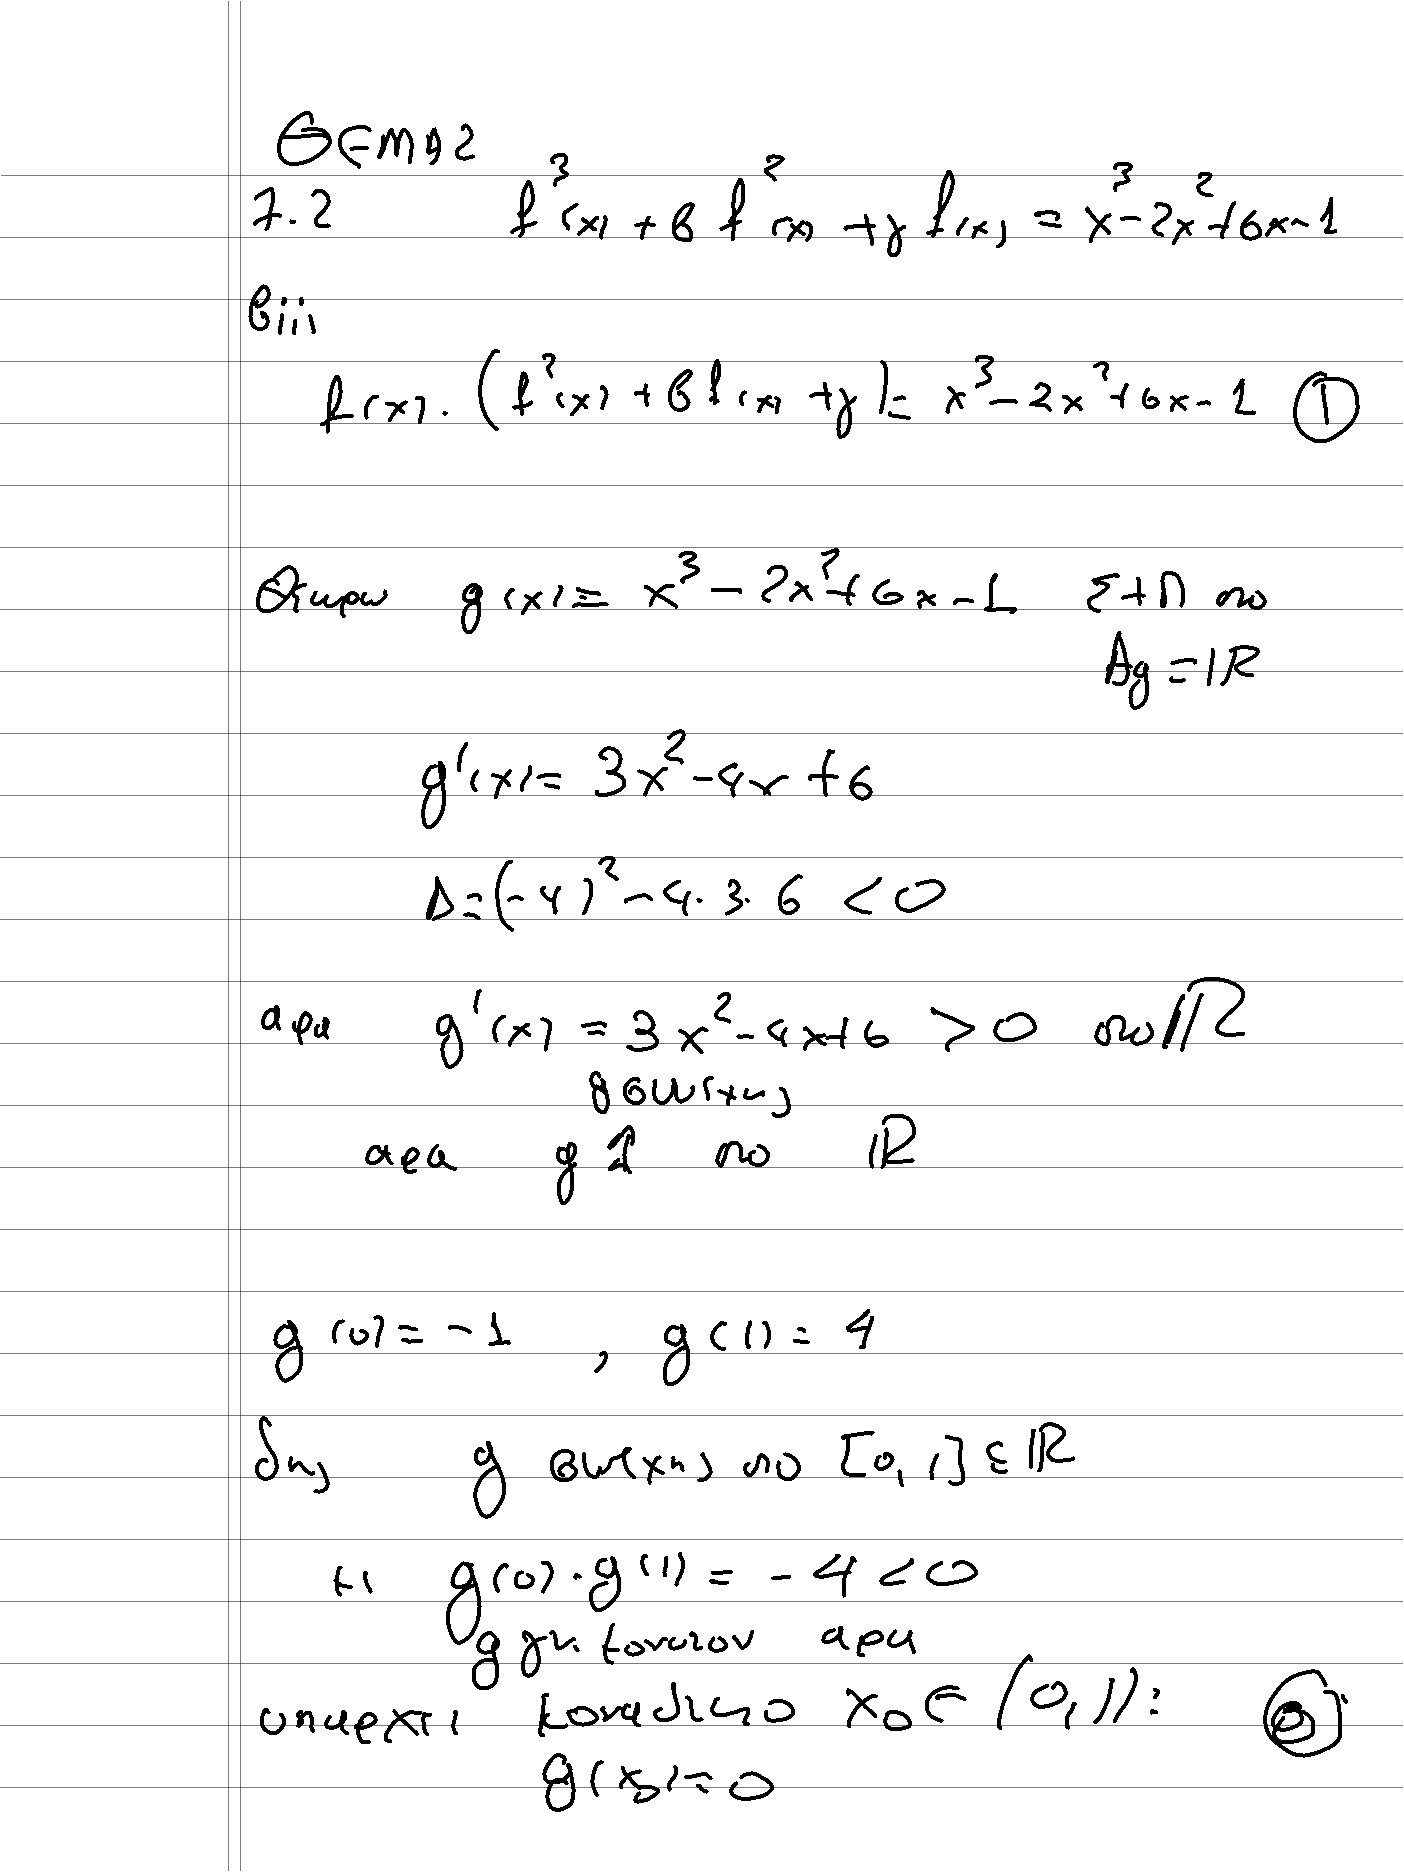 ΘΕΜΑ 2
7.2 f³(x) + β f²(x) + γ f(x) = x³-2x²+6x-1
βiii
f(x). (f²(x) + β f(x) + γ) = x³-2x²+6x-1 ①
Θεωρω g(x) = x³ - 2x²+6x-1 Σ+Π στο
Ag = ℝ
g'(x) = 3x²-4x+6
Δ=(-4)²-4.3.6 <0
αρα g'(x) = 3x²-4x+6 >0 στο ℝ
g συνεχης
αρα g ↑ στο ℝ
g(0) = -1 , g(1) = 4
δης g συνεχης στο [0,1] ε ℝ
κι g(0).g(1) = -4<0
g γν. μονοτον αρα
υπαρχει μοναδικο x₀ ∈ (0,1):
g(x₀)=0